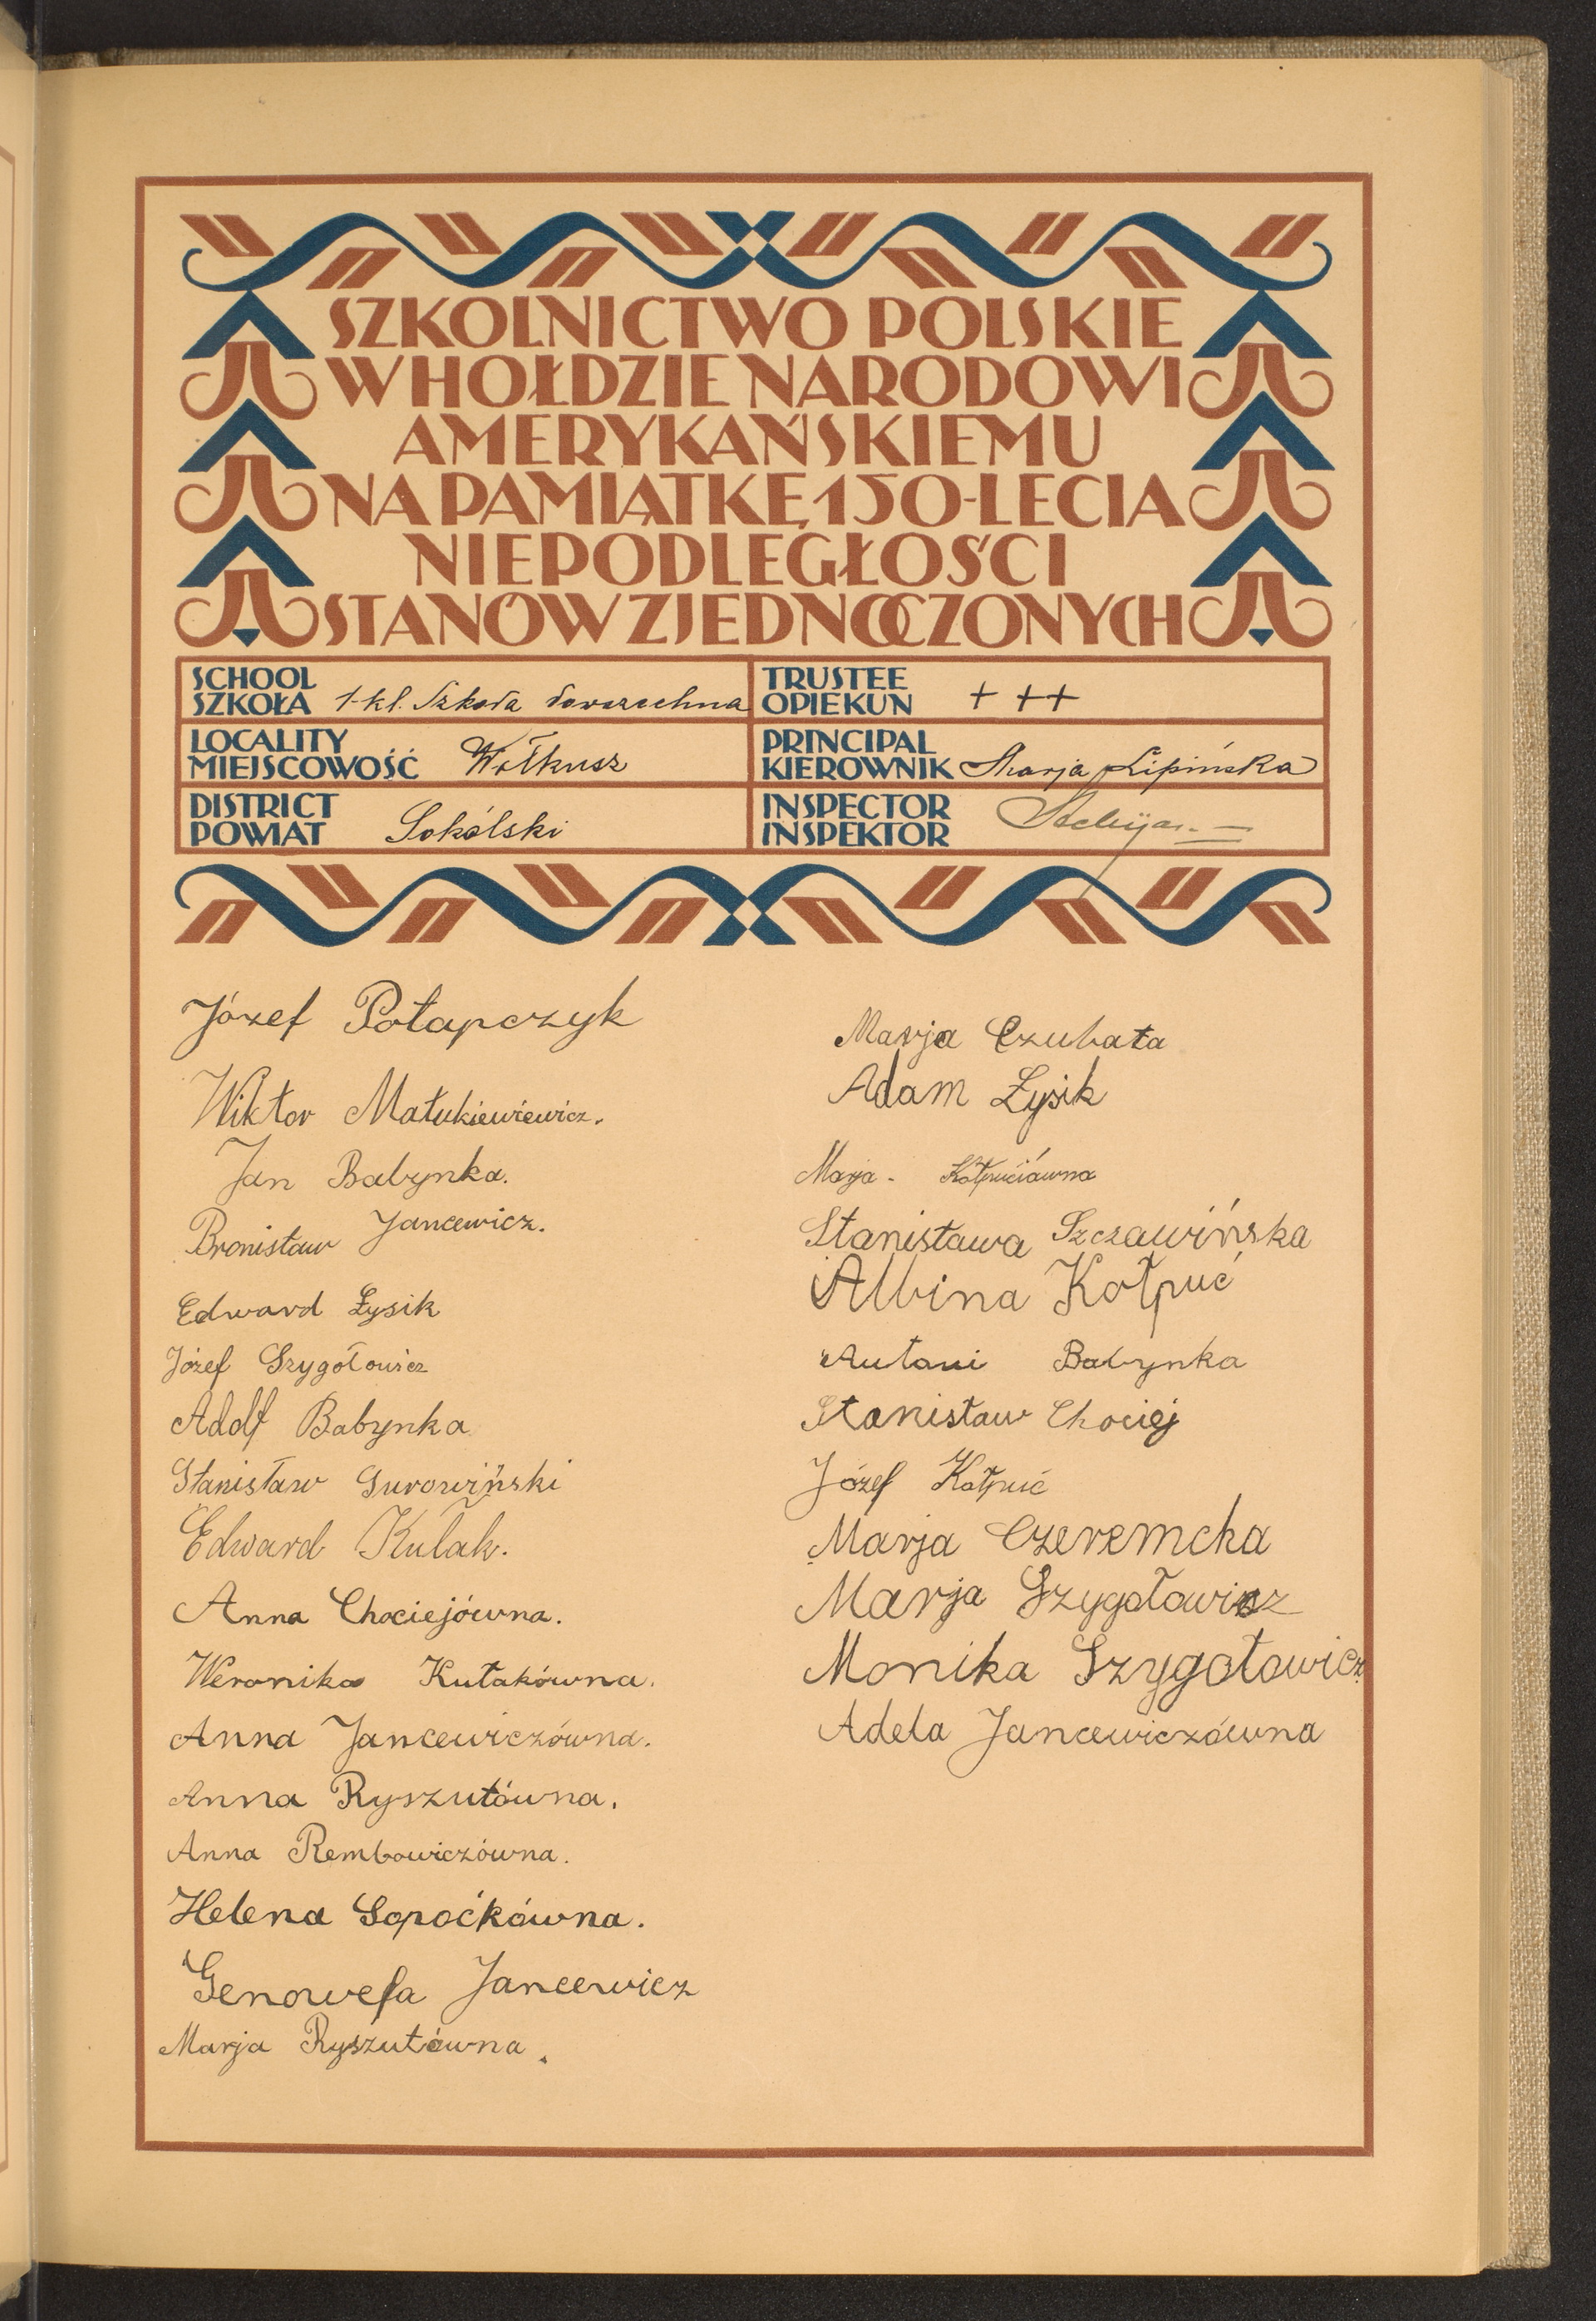 SZKOLNICTWO POLSKIE
W HOŁDZIE NARODOWI
AMERYKAŃSKIEMU
NA PAMIĄTKĘ 150-LECIA
NIEPODLEGŁOŚCI
STANÓW ZJEDNOCZONYCH
SCHOOL
SZKOŁA 1-kl. Szkoła Powszechna
TRUSTEE
OPIEKUN + ++
LOCALITY
MIEJSCOWOŚĆ Wołkusz
PRINCIPAL
KIEROWNIK Marja Lipińska
DISTRICT
POWIAT Sokólski
INSPECTOR
INSPEKTOR
Józef Potapczyk
Wiktor Matukiewiewicz.
Jan Babynka.
Bronisław Jancewicz.
Edward Łysik
Józef Szygołowicz
Adolf Babynka
Stanisław Surowiński
Edward Kułak.
Anna Chociejówna.
Weronika Kułakówna.
Anna Jancewiczówna.
Anna Ryszutówna.
Anna Rembowiczówna.
Helena Sopoćkówna.
Genowefa Jancewicz
Marja Ryszutówna.
Marja Czubata
Adam Łysik
Marja - Kołpuciówna
Stanisława Szczawińska
Albina Kołpuć
Antoni Babynka
Stanisław Chociej
Józef Kołpuć
Marja Czeremcha
Marja Szygołowicz
Monika Szygołowicz
Adela Jancewiczówna